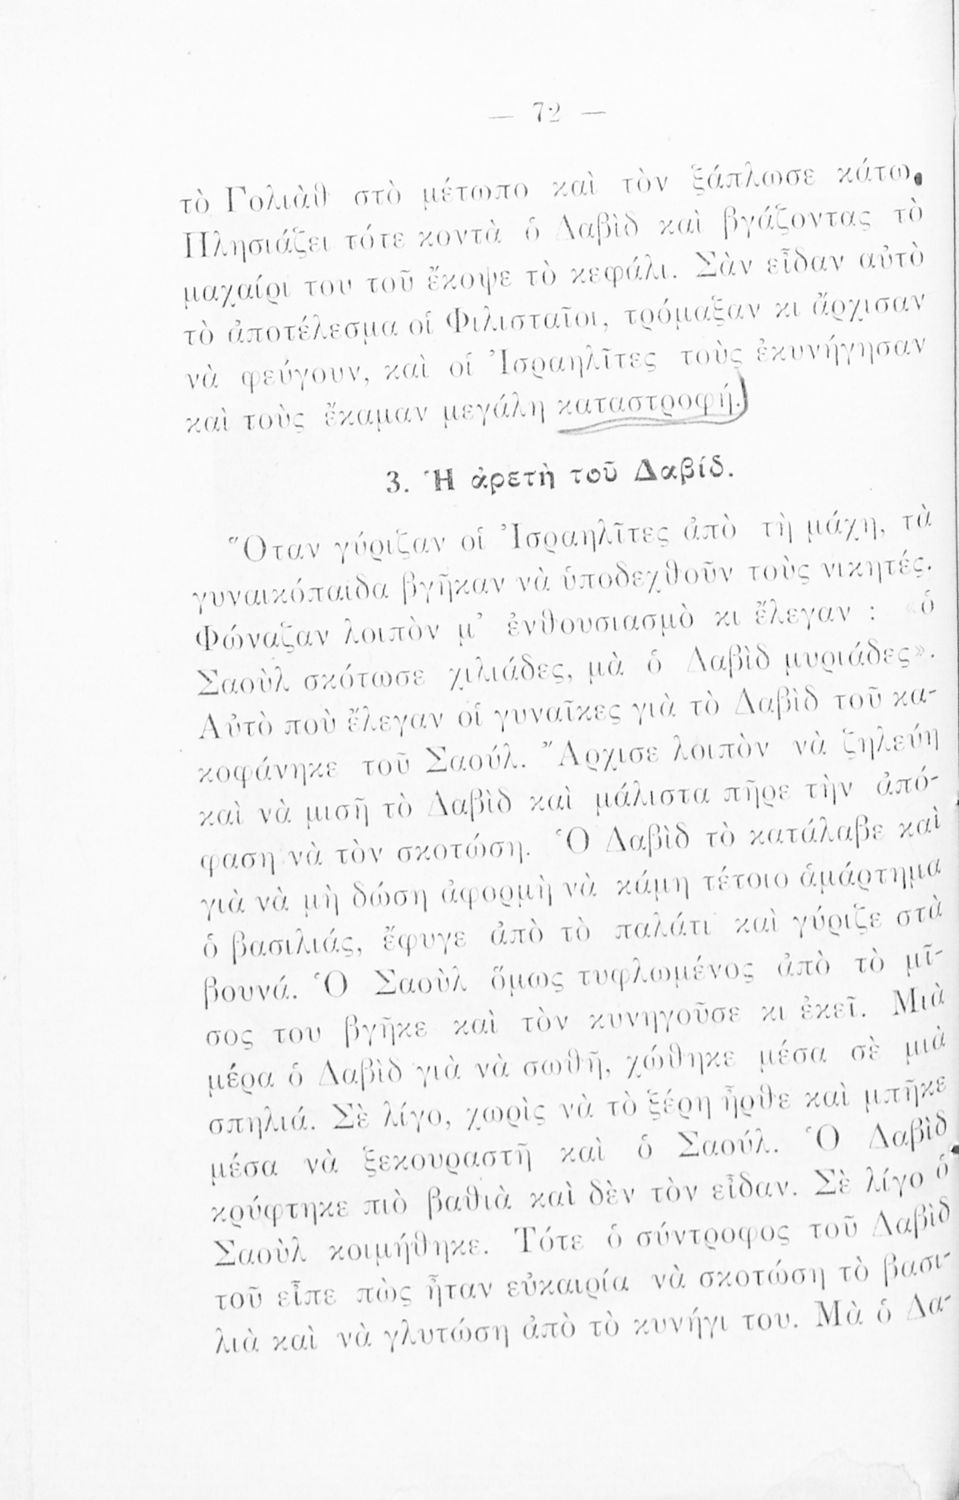 — 72 —
τὸ Γολιὰθ στὸ μέτωπο καὶ τὸν ξάπλωσε κάτω.
Πλησιάζει τότε κοντὰ ὁ Δαβὶδ καὶ βγάζοντας τὸ
μαχαίρι του τοῦ ἔκοψε τὸ κεφάλι. Σὰν εἶδαν αὐτὸ
τὸ ἀποτέλεσμα οἱ Φιλισταῖοι, τρόμαξαν κι ἄρχισαν
νὰ φεύγουν, καὶ οἱ Ἰσραηλῖτες τοὺς ἐκυνήγησαν
καὶ τοὺς ἔκαμαν μεγάλη καταστροφή.
3. Ἡ ἀρετὴ τοῦ Δαβίδ.
Ὅταν γύριζαν οἱ Ἰσραηλῖτες ἀπὸ τὴ μάχη, τὰ
γυναικόπαιδα βγῆκαν νὰ ὑποδεχθοῦν τοὺς νικητές.
Φώναζαν λοιπὸν μ᾿ ἐνθουσιασμὸ κι ἔλεγαν : «ὁ
Σαοὺλ σκότωσε χιλιάδες, μὰ ὁ Δαβὶδ μυριάδες».
Αὐτὸ ποὺ ἔλεγαν οἱ γυναῖκες γιὰ τὸ Δαβὶδ τοῦ κα-
κοφάνηκε τοῦ Σαούλ. Ἄρχισε λοιπὸν νὰ ζηλεύη
καὶ νὰ μισῆ τὸ Δαβὶδ καὶ μάλιστα πῆρε τὴν ἀπό-
φαση νὰ τὸν σκοτώση. Ὁ Δαβὶδ τὸ κατάλαβε καὶ
γιὰ νὰ μὴ δώση ἀφορμὴ νὰ κάμη τέτοιο ἁμάρτημα
ὁ βασιλιάς, ἔφυγε ἀπὸ τὸ παλάτι καὶ γύριζε στὰ
βουνά. Ὁ Σαοὺλ ὅμως τυφλωμένος ἀπὸ τὸ μῖ-
σος του βγῆκε καὶ τὸν κυνηγοῦσε κι ἐκεῖ. Μιὰ
μέρα ὁ Δαβὶδ γιὰ νὰ σωθῆ, χώθηκε μέσα σὲ μιὰ
σπηλιά. Σὲ λίγο, χωρὶς νὰ τὸ ξέρη ἦρθε καὶ μπῆκε
μέσα νὰ ξεκουραστῆ καὶ ὁ Σαούλ. Ὁ Δαβὶδ
κρύφτηκε πιὸ βαθιὰ καὶ δὲν τὸν εἶδαν. Σὲ λίγο ὁ
Σαοὺλ κοιμήθηκε. Τότε ὁ σύντροφος τοῦ Δαβὶδ
τοῦ εἶπε πὼς ἦταν εὐκαιρία νὰ σκοτώση τὸ βασι-
λιὰ καὶ νὰ γλυτώση ἀπὸ τὸ κυνήγι του. Μὰ ὁ Δα-